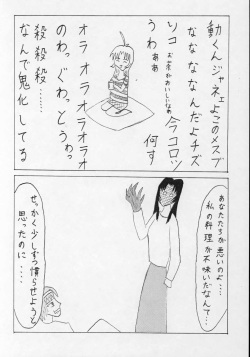 動くんジャネェよこのメスブ
なななんだよチズ
ソコ
お茶がおいしいなぁ
今コロッ
うわ
ああ
何す
のわっぐわっとうわっ
オラオラオラオラオラ
殺殺殺……
なんで鬼化してる
あなたたちが悪いのよ…
私の料理が不味いだなんて…
せっかく少しずつ慣らせようと
思ったのに……